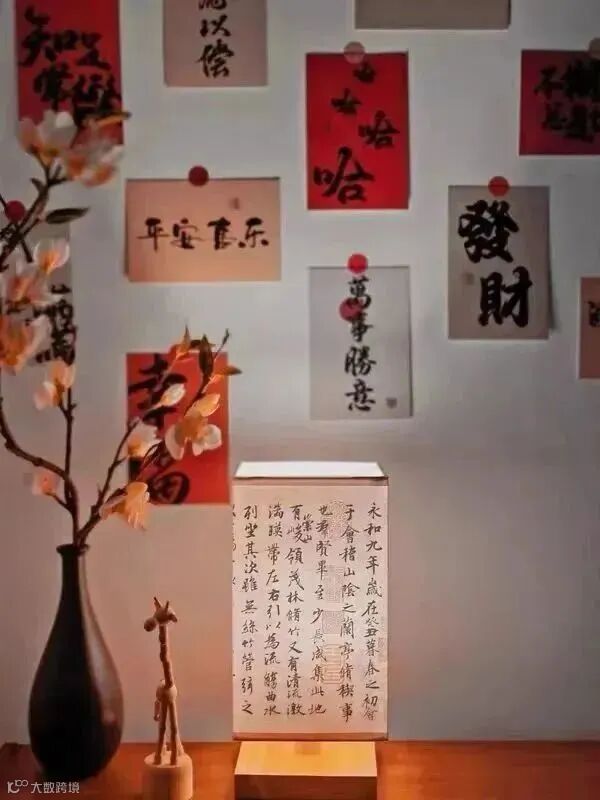 知足
常樂
以偿
哈哈哈哈
平安喜乐
發財
萬事勝意
幸福
永和九年歲在癸丑暮春之初會
于會稽山陰之蘭亭脩稧事
也羣賢畢至少長咸集此地
有崇山峻領茂林脩竹又有清流激
湍暎帶左右引以為流觴曲水
列坐其次雖無絲竹管弦之
大数跨境